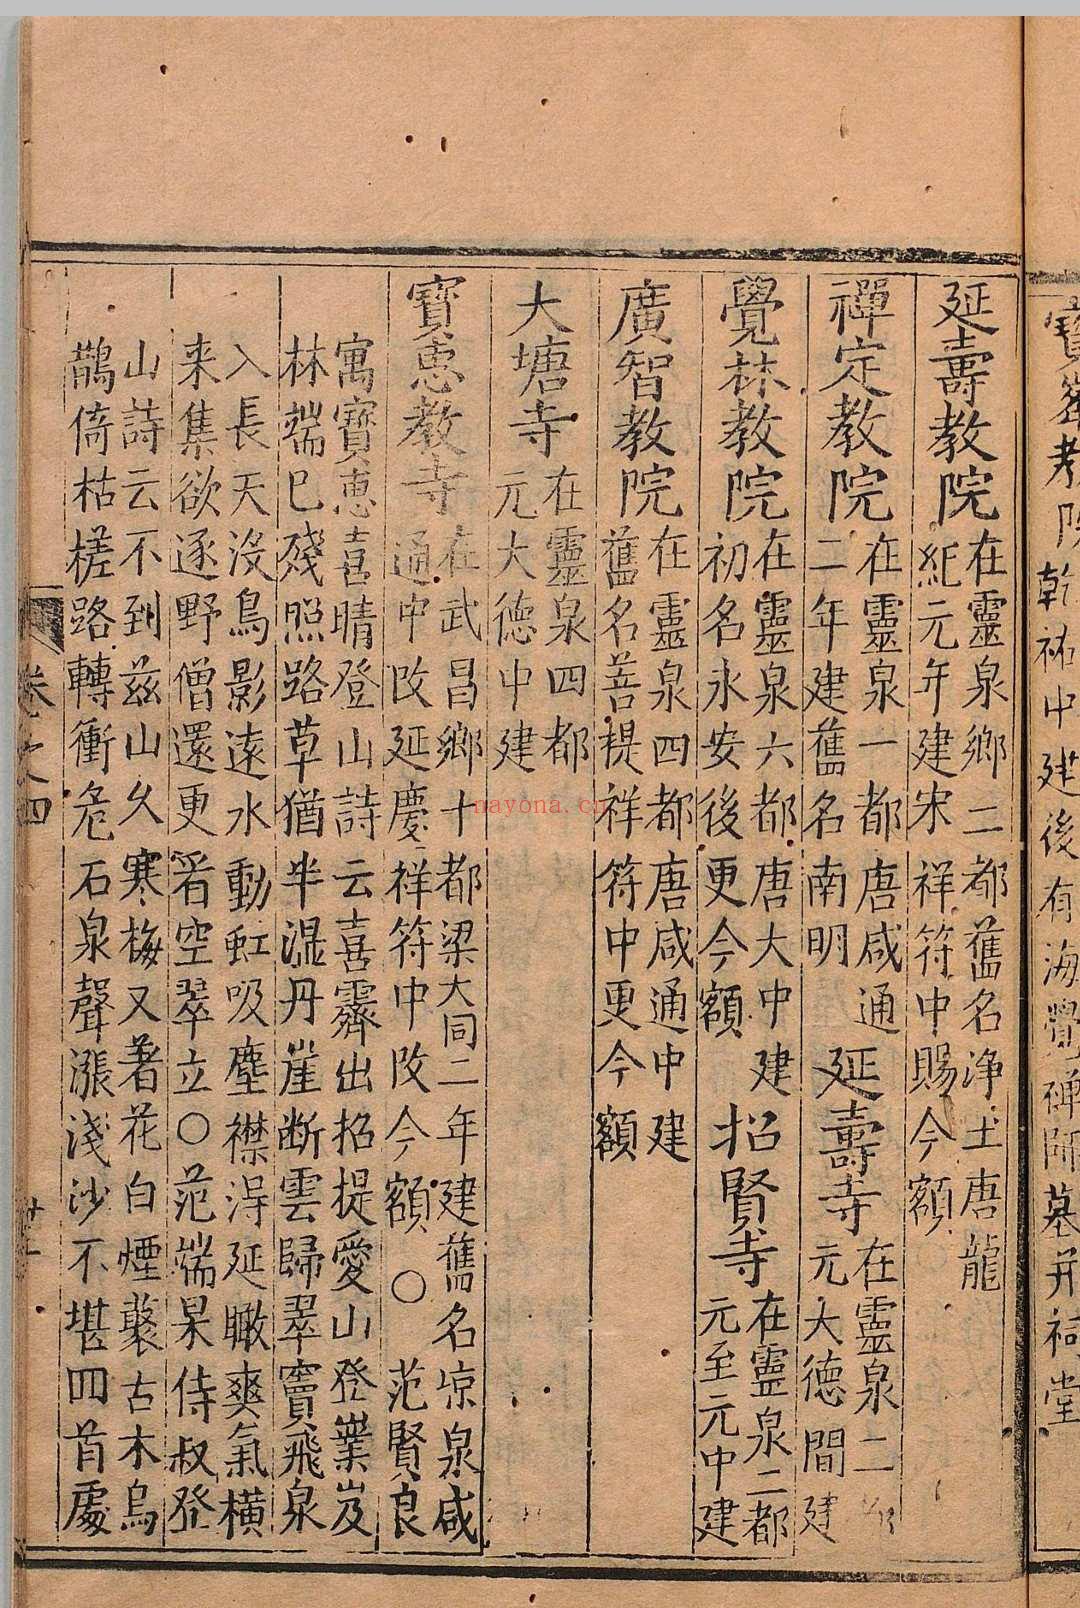 寶峯教院乾祐中建後有海覺禪師墓并祠堂
延壽教院在靈泉鄉二都舊名淨土唐龍
紀元年建宋祥符中賜今額
禪定教院在靈泉一都唐咸通
二年建舊名南明
延壽寺在靈泉二都
元大德間建
覺林教院在靈泉六都唐大中建
初名永安後更今額
招賢寺在靈泉二都
元至元中建
廣智教院在靈泉四都唐咸通中建
舊名菩提祥符中更今額
大塘寺在靈泉四都
元大德中建
寶惠教寺在武昌鄉十都梁大同二年建舊名凉泉咸
通中改延慶祥符中改今額○范賢良
寓寶惠喜晴登山詩云喜霽出招提愛山登嶪岌
林端已殘照路草猶半濕丹崖斷雲歸翠竇飛泉
入長天沒鳥影遠水動虹吸塵襟淂延瞰爽氣橫
来集欲逐野僧還更看空翠立○范端杲侍叔登
山詩云不到兹山久寒梅又著花白煙藂古木烏
鵲倚枯槎路轉衝危石泉聲漲淺沙不堪四首處
卷之四
nayona.cn